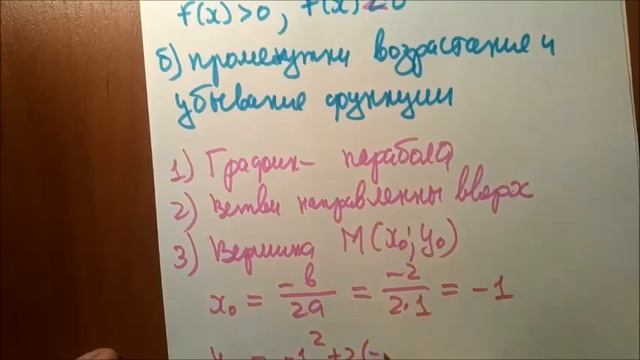 f(x)>0, f(x)<0
б) промежутки возрастания и
убывание функции
1) График – парабола
2) Ветви направленны вверх
3) Вершина M(x₀; y₀)
x₀ = -b/2a = -2/2·1 = -1
y₀ = -1² + 2(-